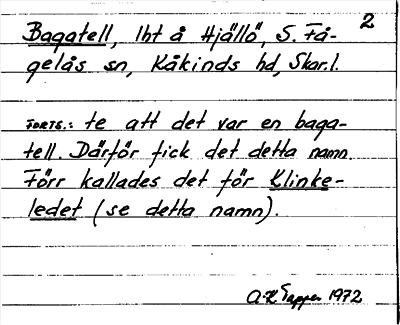 2
Bagatell, lht å Hjällö, S. Få-
gelås sn, Kåkinds hd, Skar. l.
FORTS.: te att det var en baga-
tell. Därför fick det detta namn.
Förr kallades det för Klinke-
ledet (se detta namn).
1972